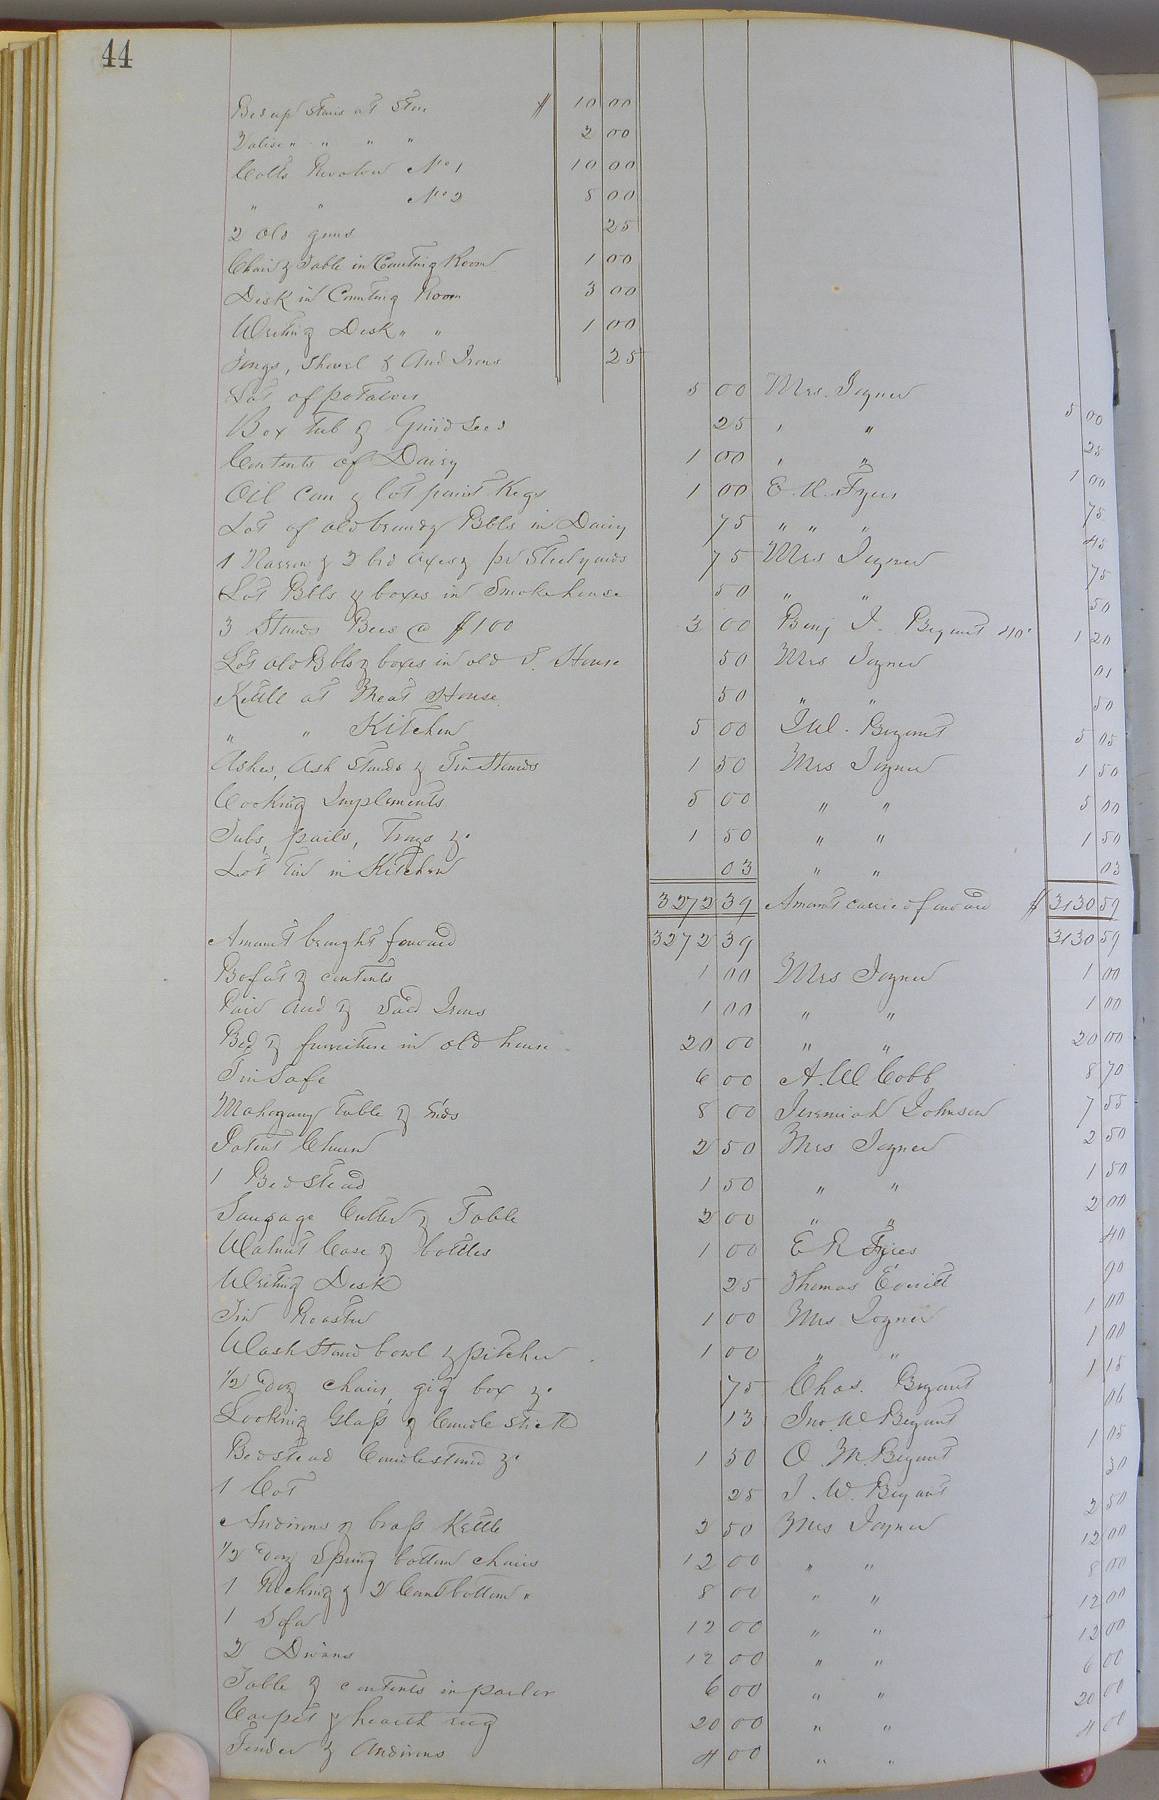 44
Bed up Stairs at Store $ 10 00
Valise " " " " 2 00
Colts Revolver No 1 10 00
" " No 2 8 00
2 old guns 25
Chair & Table in Counting Room 1 00
Desk in Counting Room 3 00
Writing Desk " " 1 00
Tongs, Shovel & And Irons 25
Lot of potatoes 5 00 Mrs. Joyner 5 00
Box Tub & 25 " " 25
Contents of Dairy 1 00 " " 1 00
Oil Can & lot paint Kegs 1 00 E. R. 75
Lot of old brandy Bbls in Dairy 75 " " " 45
1 Narrow & 2 brd axes & pr Steelyards 75 Mrs Joyner 75
Lot Bbls & boxes in Smokehouse 50 " " 50
3 Stands Bees @ $1 00 3 00 Benj J. Bryant 1 20
Lot old Bbls & boxes in old S. House 50 Mrs Joyner 01
Kettle at Meat House 50 " " 50
" " Kitchen 5 00 J.W. Bryant 5 05
Ashes, Ash Stands & Tin Stands 1 50 Mrs Joyner 1 50
Cooking Implements 5 00 " " 5 00
Tubs, pails, Trays &c 1 50 " " 1 50
Lot Tin in Kitchen 03 " " 03
3272 39 Amount carried forward $ 3130 59
Amount brought forward 3272 39 3130 59
Bofat & contents 1 00 Mrs Joyner 1 00
Pair And & Sad Irons 1 00 " " 1 00
Bed & furniture in old house 20 00 " " 20 00
Tin Safe 6 00 A. W Cobb 8 70
Mahogany Table & Ends 8 00 Jeremiah Johnson 7 55
Patent Churn 2 50 Mrs Joyner 2 50
1 Bedstead 1 50 " " 1 50
Sausage Cutter & Table 2 00 " " 2 00
Walnut Case & bottles 1 00 E R 40
Writing Desk 25 Thomas Everitt 90
Tin Roaster 1 00 Mrs Joyner 1 00
Wash Stand bowl & pitcher 1 00 " " 1 00
1/2 Doz chairs, gig box &c 75 Chas. Bryant 1 15
Looking Glass & Candle Stick 13 Jno. W Bryant 06
Bedstead Candlestand &c 1 50 O. M. Bryant 1 05
1 Cot 25 J. W. Bryant 30
Andirons & brass Kettle 2 50 Mrs Joyner 2 50
1/2 Doz Spring bottom chairs 12 00 " " 12 00
1 Rocking & 2 Cane bottom " 8 00 " " 8 00
1 Sofa 12 00 " " 12 00
2 Divans 12 00 " " 12 00
Table & contents in parlor 6 00 " " 6 00
Carpet & hearth rug 20 00 " " 20 00
Fender & Andirons 4 00 " " 4 00